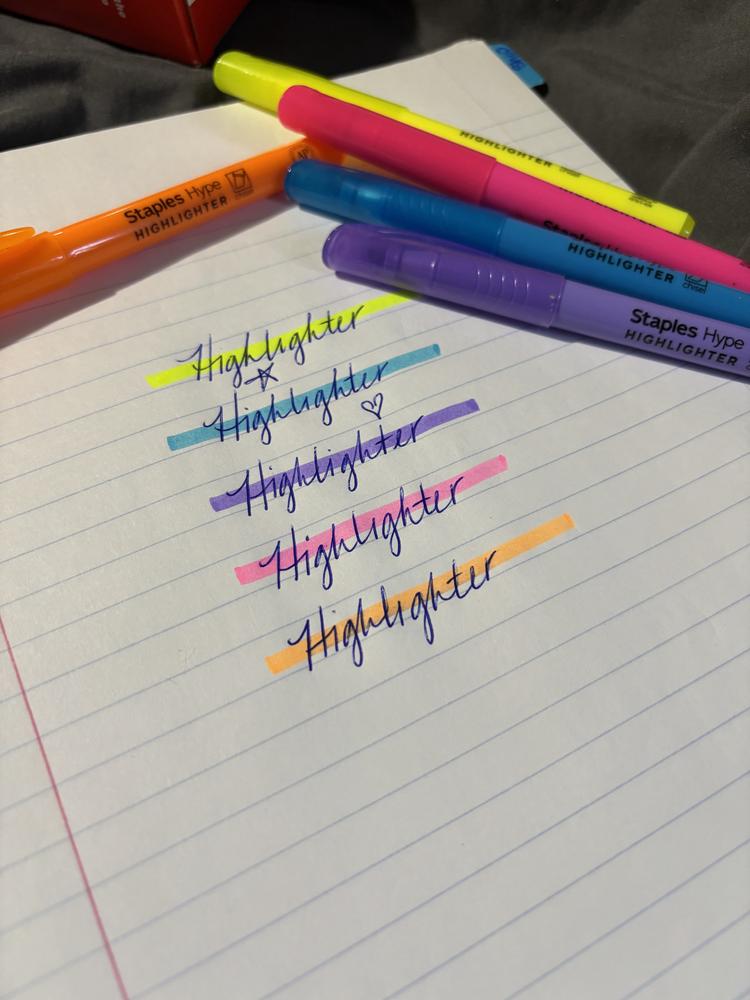 the
HIGHLIGHTER
chisel
Staples Hype
HIGHLIGHTER
HIGHLIGHTER
chisel
Staples Hype
HIGHLIGHTER
Highlighter
Highlighter
Highlighter
Highlighter
Highlighter